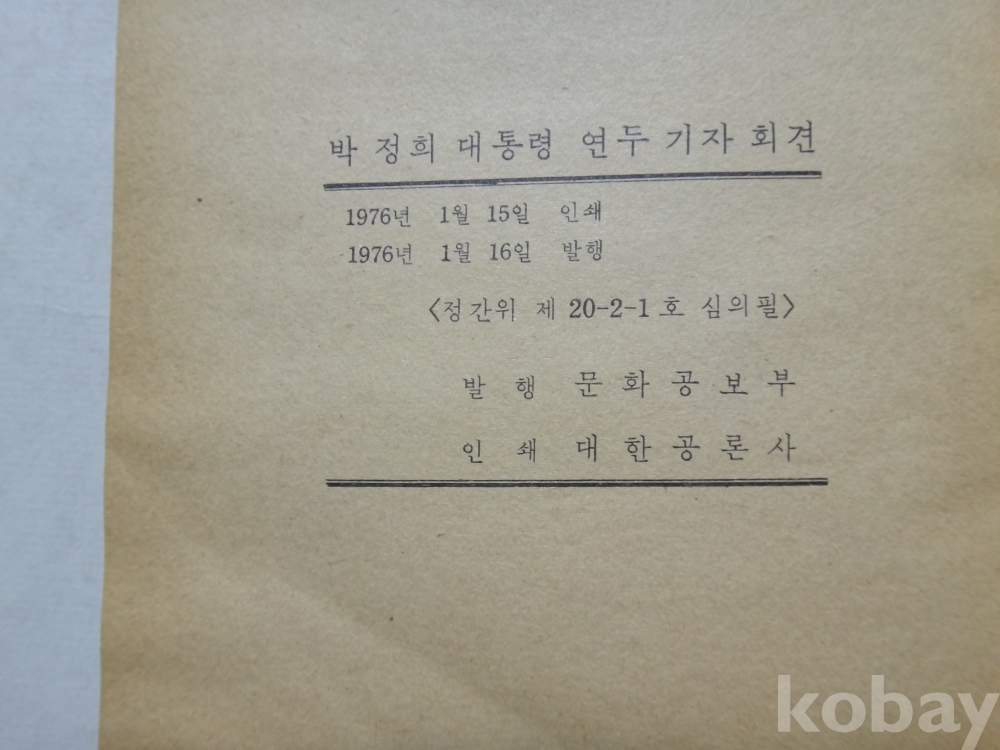 박 정희 대통령 연두 기자 회견
1976년 1월 15일 인쇄
1976년 1월 16일 발행
〈정간위 제 20-2-1 호 심의필〉
발 행 문 화 공 보 부
인 쇄 대 한 공 론 사
kobay